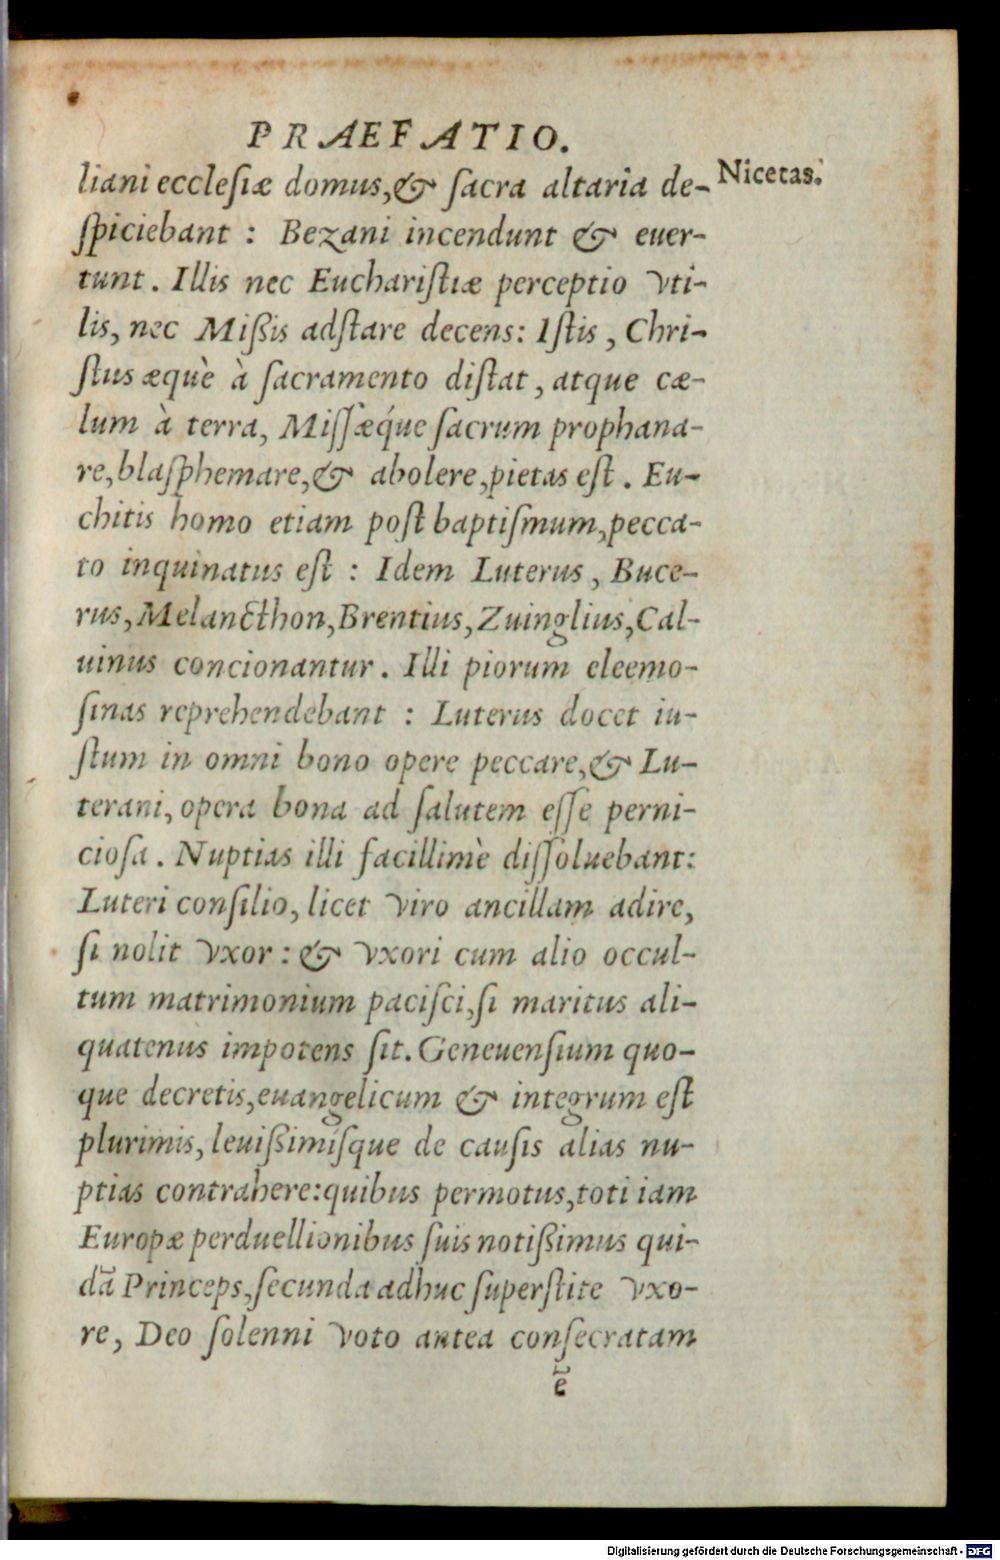 PRAEFATIO.
liani ecclesiæ domus,& sacra altaria de-
Nicetas.
spiciebant : Bezani incendunt & euer-
tunt. Illis nec Eucharistiæ perceptio vti-
lis, nec Mißis adstare decens: Istis, Chri-
stus æquè à sacramento distat, atque cæ-
lum à terra, Missæque sacrum prophana-
re, blasphemare,& abolere, pietas est. Eu-
chitis homo etiam post baptismum, pecca-
to inquinatus est : Idem Luterus, Buce-
rus, Melancthon, Brentius, Zuinglius, Cal-
uinus concionantur. Illi piorum eleemo-
sinas reprehendebant : Luterus docet iu-
stum in omni bono opere peccare,& Lu-
terani, opera bona ad salutem esse perni-
ciosa. Nuptias illi facillimè dissoluebant:
Luteri consilio, licet viro ancillam adire,
si nolit vxor: & vxori cum alio occul-
tum matrimonium pacisci, si maritus ali-
quatenus impotens sit. Geneuensium quo-
que decretis, euangelicum & integrum est
plurimis, leuißimisque de causis alias nu-
ptias contrahere: quibus permotus, toti iam
Europæ perduellionibus suis notißimus qui-
dā Princeps, secunda adhuc superstite vxo-
re, Deo solenni voto antea consecratam
ē
Digitalisierung gefördert durch die Deutsche Forschungsgemeinschaft - DFG